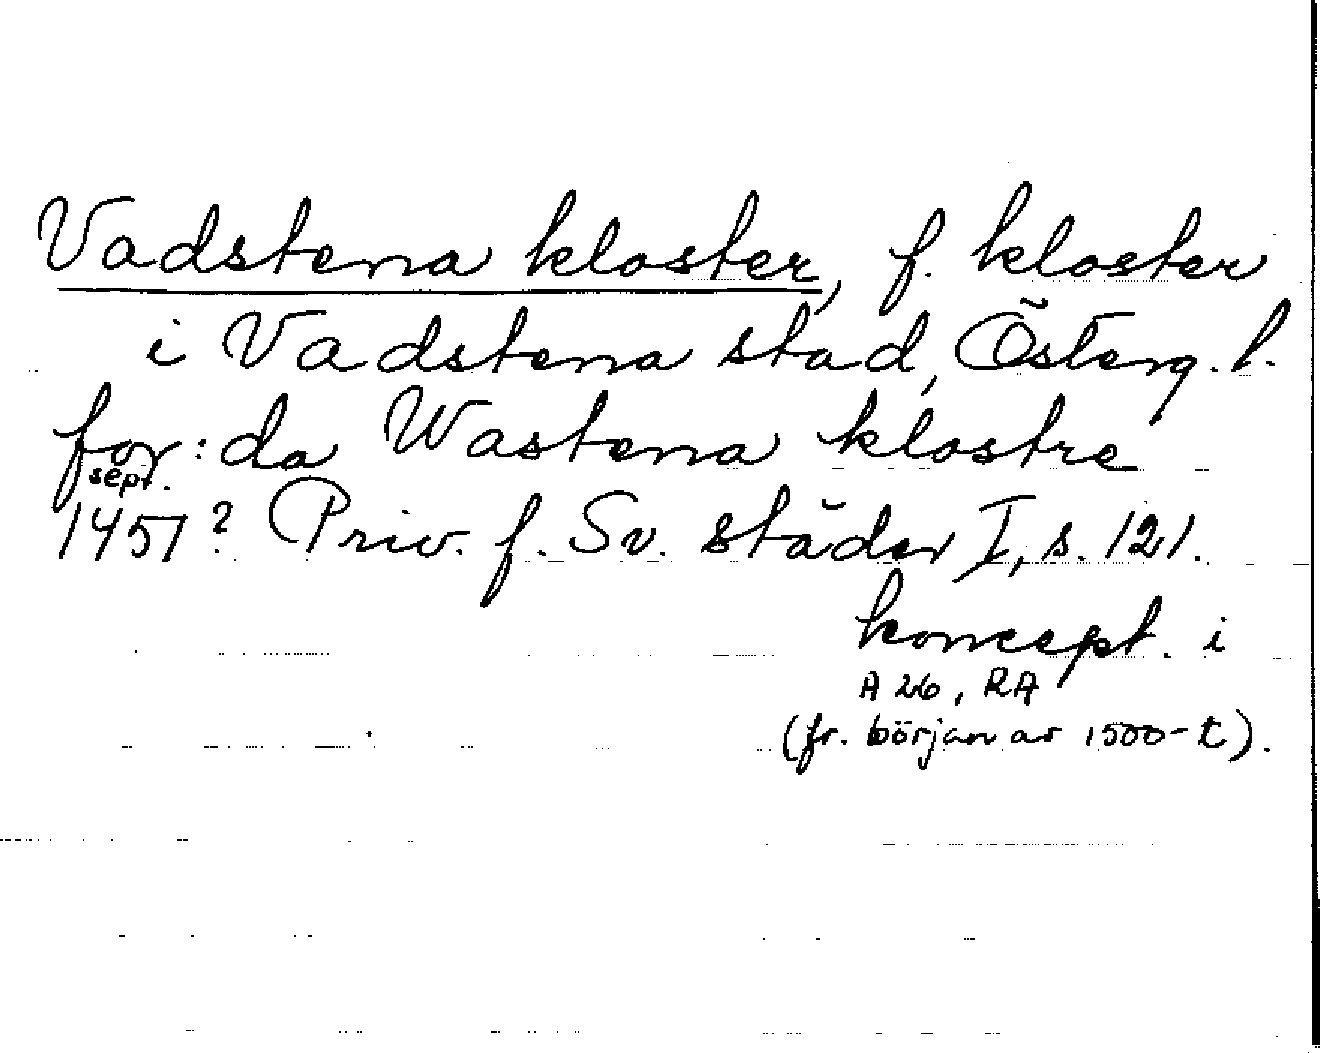 Vadstena kloster, f. kloster
i Vadstena stad, Österg. l.
for: da Wastena klostre
sept.
1457? Priv. f. Sv. städer I, s. 121.
koncept. i
A 26, RA
(fr. början av 1500-t).